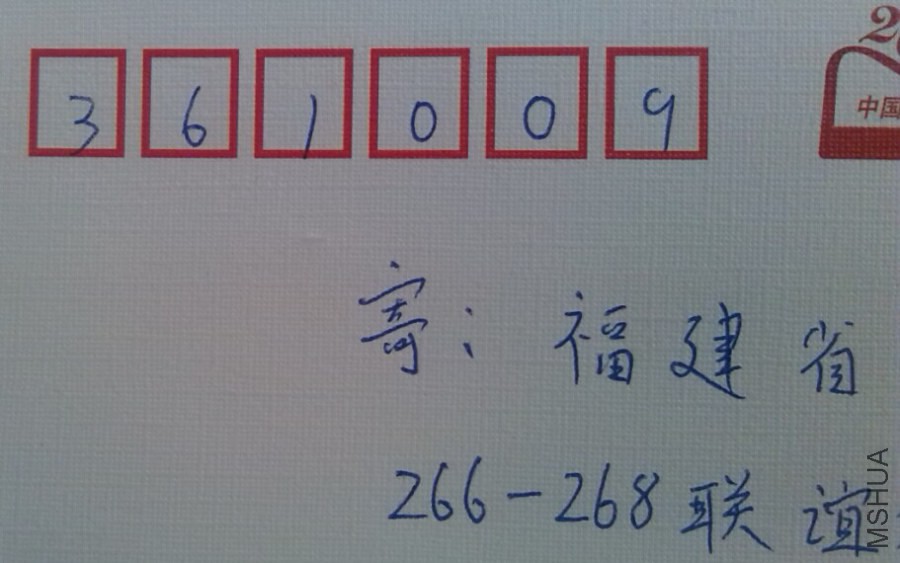 361009
中国
寄：福建省
266-268联谊
MSHUA